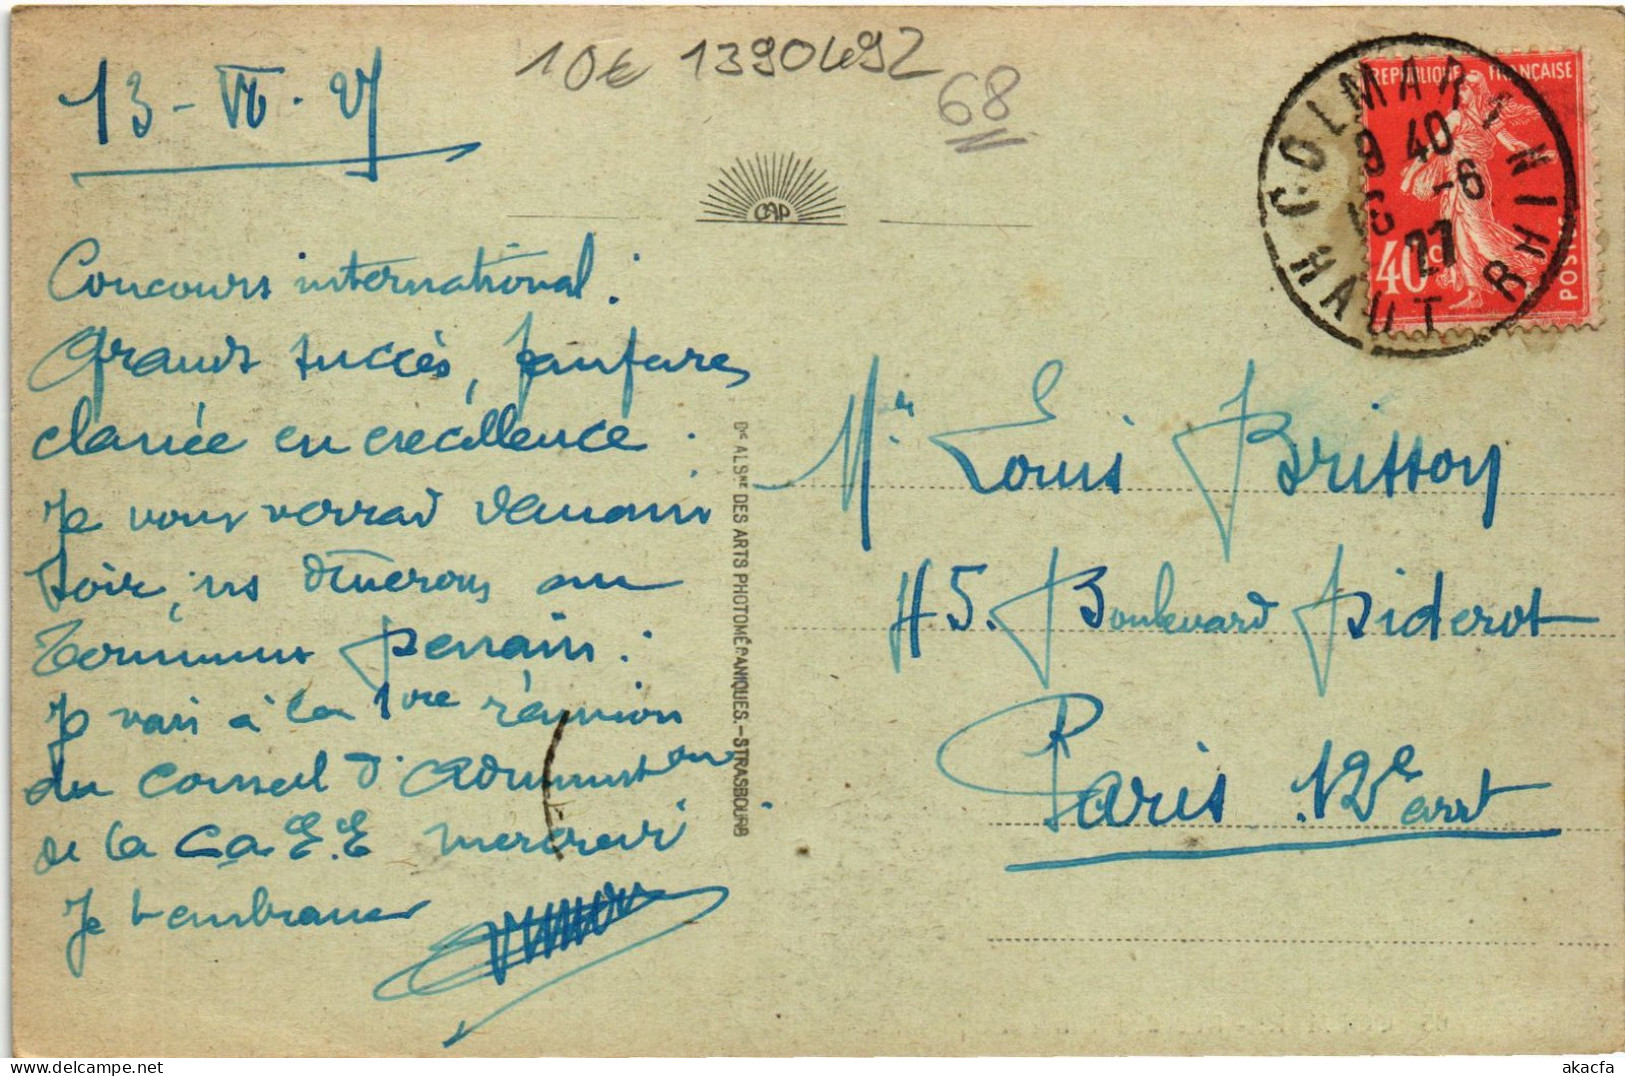 10€ 1390492
68
13-VI.27
CAP
Concours international :
Grand succès, fanfare
classée en excellence.
Je vous verrai demain
soir, ns dînerons en
commun
Je vais à la 1re réunion
du Conseil d'administon
de la Ca E.E mercredi
Je t'embrasse
Cie ALSNE DES ARTS PHOTOMÉCANIQUES.-STRASBOURG
REPUBLIQUE FRANÇAISE
40c
POSTES
COLMAR
HAUT RHIN
40
-6
27
Mr Louis Brisson
45. Boulevard Diderot
Paris. 12e arrt
akacfa